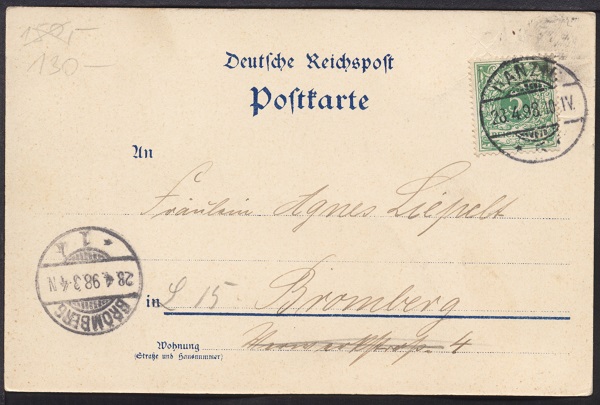 130-
Deutsche Reichspost
Postkarte
28.4.98
An
Fräulein Agnes Liepelt
in L 15 Bromberg
Wohnung
(Straße und Hausnummer)
4
BROMBERG
28.4.98.3-4N
1 k